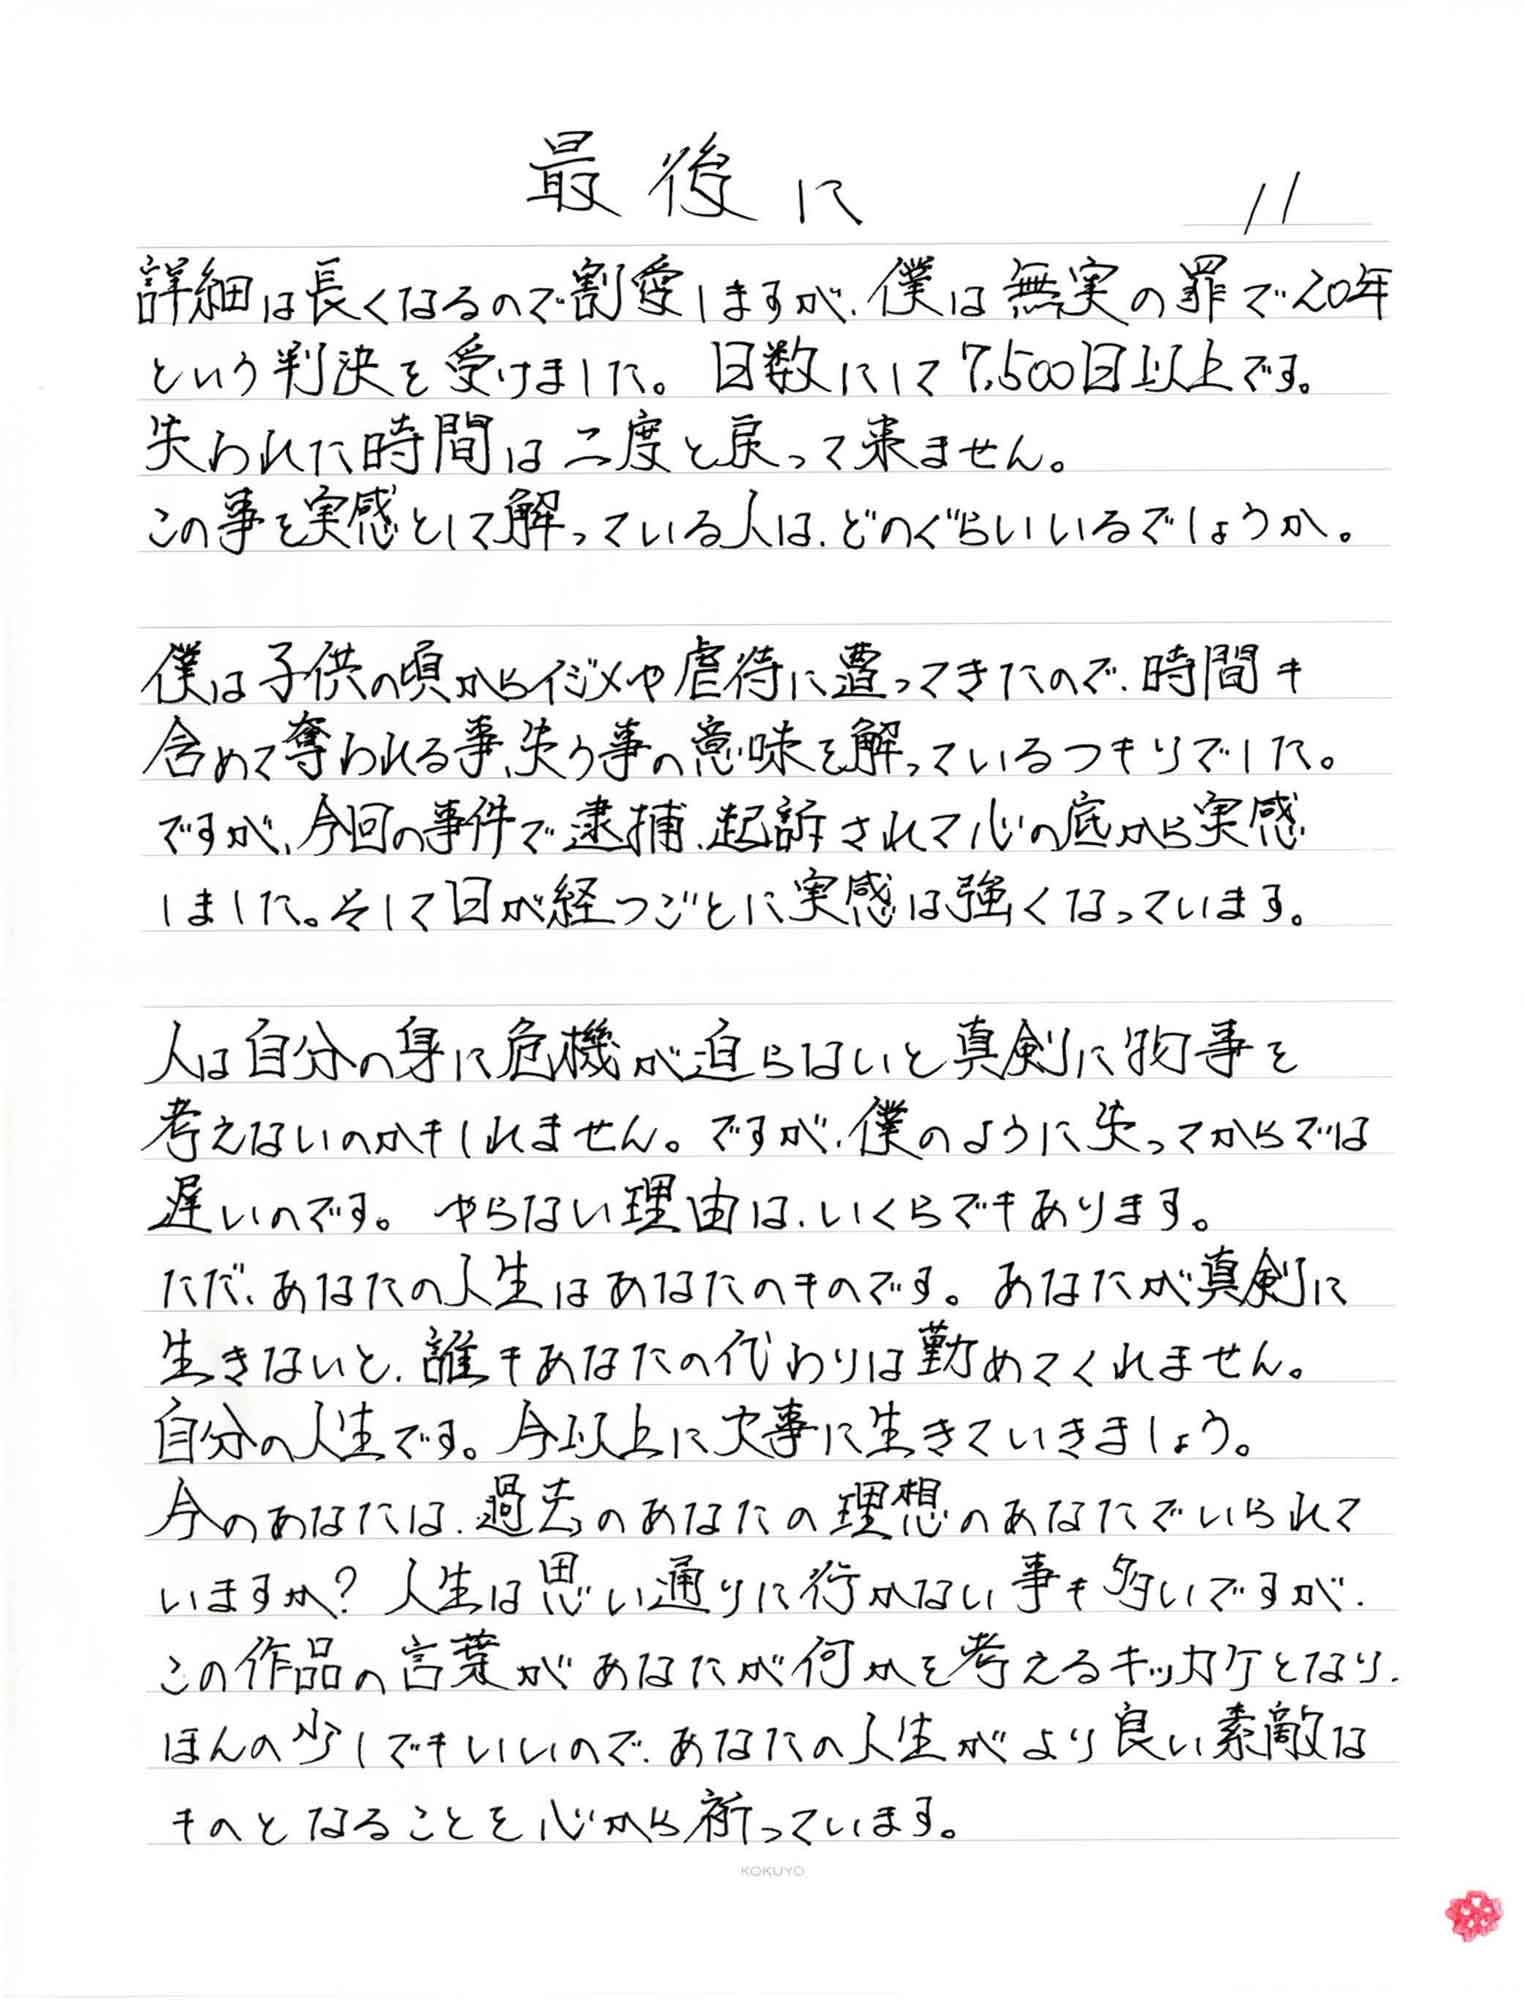 最後に
11
詳細は長くなるので割愛しますが、僕は無実の罪で20年
という判決を受けました。日数にして7,500日以上です。
失われた時間は二度と戻って来ません。
この事を実感として解っている人は、どのぐらいいるでしょうか。
僕は子供の頃からイジメや虐待に遭ってきたので、時間も
含めて奪われる事、失う事の意味を解っているつもりでした。
ですが、今回の事件で逮捕、起訴されて心の底から実感
しました。そして日が経つごとに実感は強くなっています。
人は自分の身に危機が迫らないと真剣に物事を
考えないのかもしれません。ですが、僕のように失ってからでは
遅いのです。やらない理由は、いくらでもあります。
ただ、あなたの人生はあなたのものです。あなたが真剣に
生きないと、誰もあなたの代わりは勤めてくれません。
自分の人生です。今以上に大事に生きていきましょう。
今のあなたは、過去のあなたの理想のあなたでいられて
いますか?人生は思い通りに行かない事も多いですが、
この作品の言葉があなたが何かを考えるキッカケとなり、
ほんの少しでもいいので、あなたの人生がより良い素敵な
ものとなることを心から祈っています。
KOKUYO